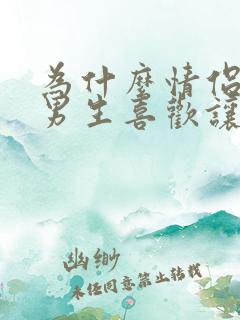 為什麼情侶
男生喜歡讓
幽缈
未经同意禁止转载